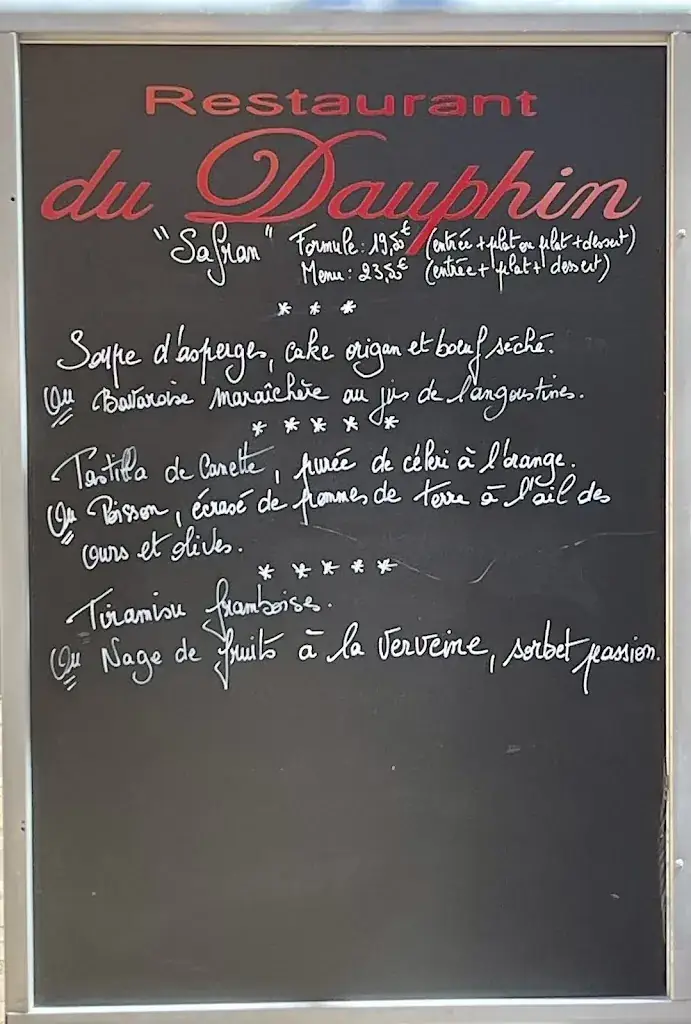 Restaurant
du Dauphin
"Safran" Formule: 19,50€ (entrée + plat ou plat + dessert)
Menu: 23,50€ (entrée + plat + dessert)
* * *
Soupe d'asperges, cake origan et bœuf séché.
Ou Bavaroise maraîchère au jus de langoustines.
* * * * *
Pastilla de Canette, purée de céleri à l'orange.
Ou Poisson, écrasé de pommes de terre à l'ail des
ours et olives.
* * * * *
Tiramisu framboises.
Ou Nage de fruits à la verveine, sorbet passion.